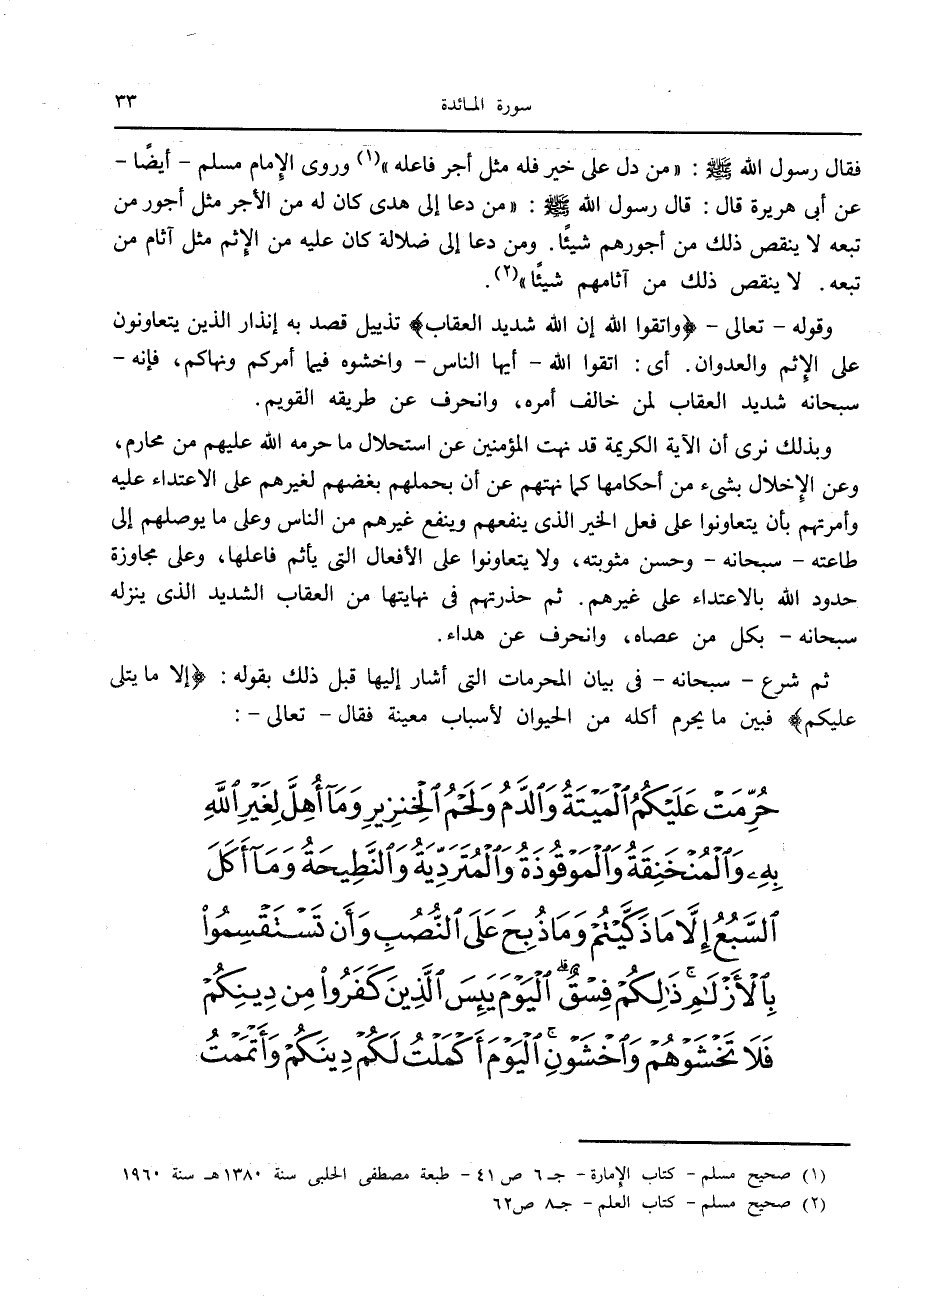 سورة المائدة ٣٣
فقال رسول الله ﷺ : «من دل على خير فله مثل أجر فاعله»(١) وروى الإمام مسلم - أيضًا -
عن أبى هريرة قال : قال رسول الله ﷺ : «من دعا إلى هدى كان له من الأجر مثل أجور من
تبعه لا ينقص ذلك من أجورهم شيئًا. ومن دعا إلى ضلالة كان عليه من الإثم مثل آثام من
تبعه. لا ينقص ذلك من آثامهم شيئًا»(٢).
وقوله - تعالى - ﴿واتقوا الله إن الله شديد العقاب﴾ تذييل قصد به إنذار الذين يتعاونون
على الإثم والعدوان. أى : اتقوا الله - أيها الناس - واخشوه فيما أمركم ونهاكم، فإنه -
سبحانه شديد العقاب لمن خالف أمره، وانحرف عن طريقه القويم.
وبذلك نرى أن الآية الكريمة قد نهت المؤمنين عن استحلال ما حرمه الله عليهم من محارم،
وعن الإخلال بشىء من أحكامها كما نهتهم عن أن يحملهم بغضهم لغيرهم على الاعتداء عليه
وأمرتهم بأن يتعاونوا على فعل الخير الذى ينفعهم وينفع غيرهم من الناس وعلى ما يوصلهم إلى
طاعته - سبحانه - وحسن مثوبته، ولا يتعاونوا على الأفعال التى يأثم فاعلها، وعلى مجاوزة
حدود الله بالاعتداء على غيرهم. ثم حذرتهم فى نهايتها من العقاب الشديد الذى ينزله
سبحانه - بكل من عصاه، وانحرف عن هداء.
ثم شرع - سبحانه - فى بيان المحرمات التى أشار إليها قبل ذلك بقوله : ﴿إلا ما يتلى
عليكم﴾ فبين ما يحرم أكله من الحيوان لأسباب معينة فقال - تعالى - :
حُرِّمَتْ عَلَيْكُمُ ٱلْمَيْتَةُ وَٱلدَّمُ وَلَحْمُ ٱلْخِنزِيرِ وَمَآ أُهِلَّ لِغَيْرِ ٱللَّهِ
بِهِۦ وَٱلْمُنْخَنِقَةُ وَٱلْمَوْقُوذَةُ وَٱلْمُتَرَدِّيَةُ وَٱلنَّطِيحَةُ وَمَآ أَكَلَ
ٱلسَّبُعُ إِلَّا مَا ذَكَّيْتُمْ وَمَا ذُبِحَ عَلَى ٱلنُّصُبِ وَأَن تَسْتَقْسِمُوا۟
بِٱلْأَزْلَـٰمِ ۚ ذَٰلِكُمْ فِسْقٌ ۗ ٱلْيَوْمَ يَئِسَ ٱلَّذِينَ كَفَرُوا۟ مِن دِينِكُمْ
فَلَا تَخْشَوْهُمْ وَٱخْشَوْنِ ۚ ٱلْيَوْمَ أَكْمَلْتُ لَكُمْ دِينَكُمْ وَأَتْمَمْتُ
(١) صحيح مسلم - كتاب الإمارة - جـ٦ ص ٤١ - طبعة مصطفى الحلبى سنة ١٣٨٠هـ سنة ١٩٦٠
(٢) صحيح مسلم - كتاب العلم - جـ٨ ص٦٢